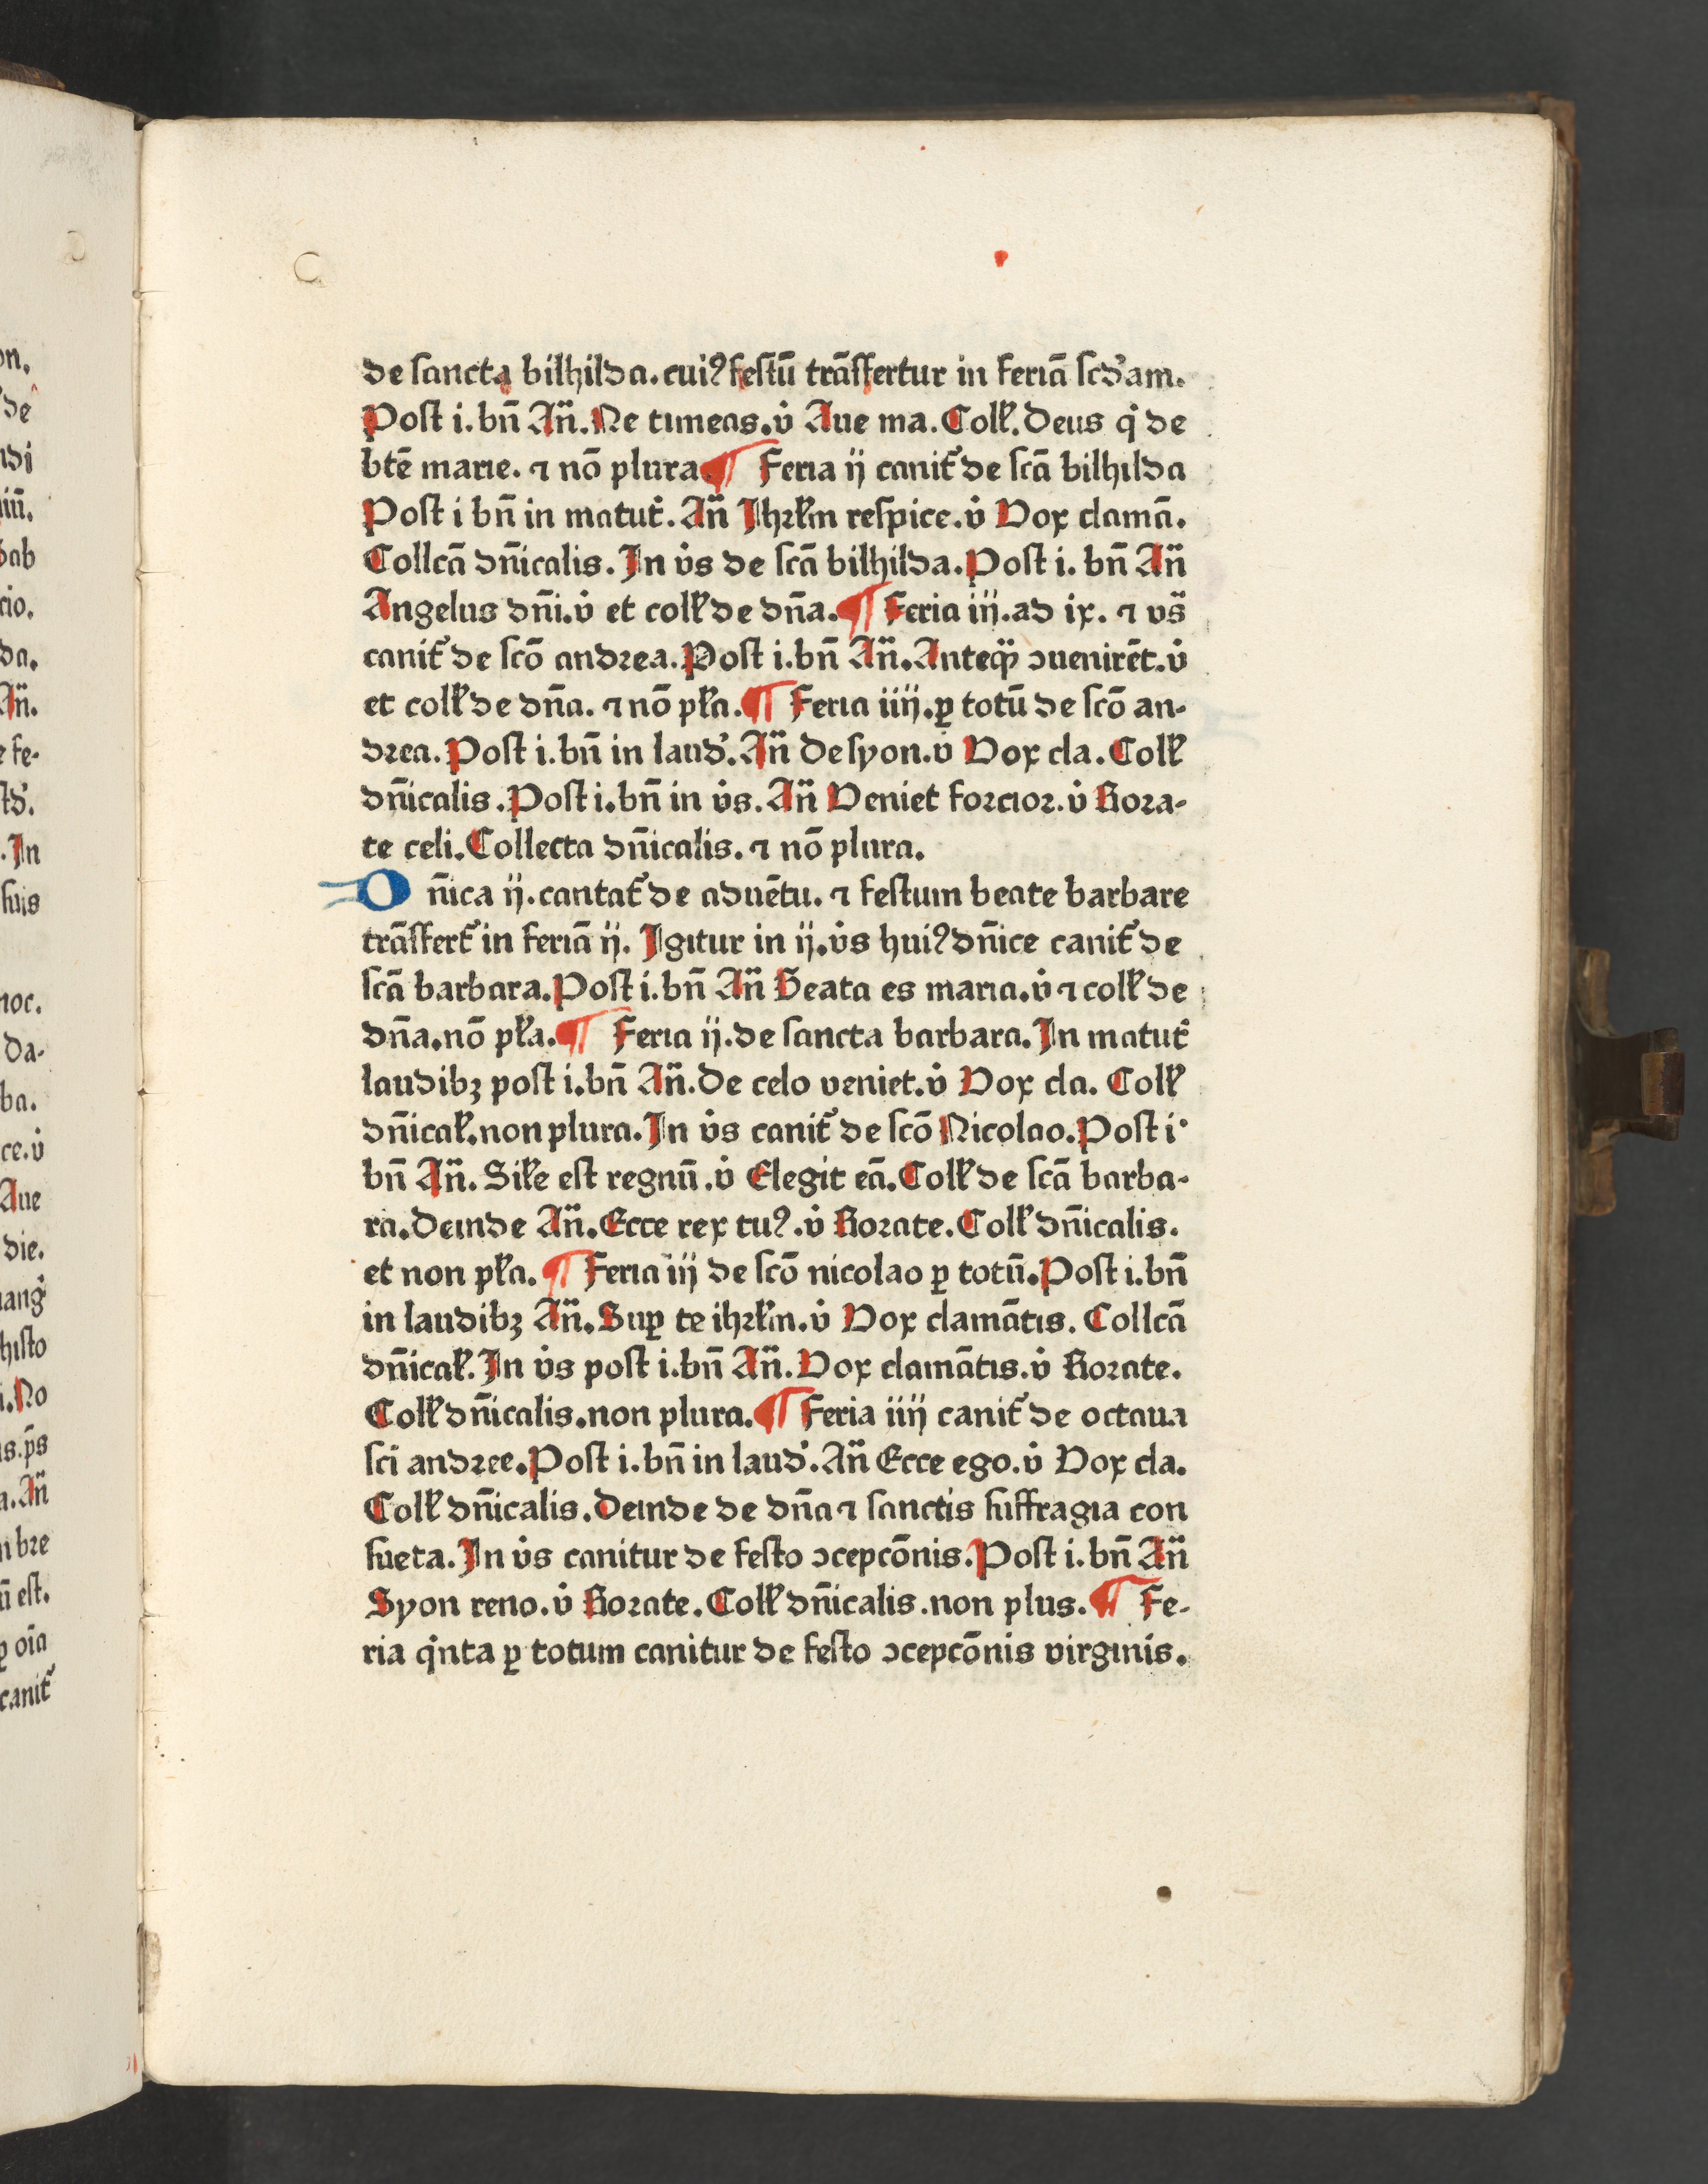 de sancta bilhilda. cuiꝰ festū trāsfertur in feriā scd'am.
Post i. bn̄ An̄. Ne timeas. v̇ Aue ma. Coll'. Deus q̇ de
btē marie. ⁊ nō plura. ¶ Feria ij canit̉ de scā bilhilda
Post i bn̄ in matut̉. An̄ Jhrl'm respice. v̇ Vox clamā.
Collcā dn̄icalis. In v̇s de scā bilhilda. Post i. bn̄ An̄
Angelus dn̄i. v̇ et coll' de dn̄a. ¶ Feria iij. ad ix. ⁊ vs̄
canit̉ de scō andrea. Post i. bn̄ An̄. Anteq̄ ꝯuenirēt. v̇
et coll' de dn̄a. ⁊ nō pl'a. ¶ Feria iiij. ꝑ totū de scō an-
drea. Post i. bn̄ in laud'. An̄ De syon. v̇ Vox cla. Coll'
dn̄icalis. Post i. bn̄ in v̇s. An̄ Veniet forcior. v̇ Rora-
te celi. Collecta dn̄icalis. ⁊ nō plura.
Dn̄ica ij. cantat̉ de aduētu. ⁊ festum beate barbare
trāsfert̉ in feriā ij. Igitur in ij. v̇s huiꝰ dn̄ice canit̉ de
scā barbara. Post i. bn̄ An̄ Beata es maria. v̇ ⁊ coll' de
dn̄a. nō pl'a. ¶ Feria ij. de sancta barbara. In matut̉
laudibꝫ post i. bn̄ An̄. De celo veniet. v̇ Vox cla. Coll'
dn̄ical'. non plura. In v̇s canit̉ de scō Nicolao. Post i.
bn̄ An̄. Sil'e est regnū. v̇ Elegit eā. Coll' de scā barba-
ra. Deinde An̄. Ecce rex tuꝰ. v̇ Rorate. Coll' dn̄icalis.
et non pl'a. ¶ Feria iij de scō nicolao ꝑ totū. Post i. bn̄
in laudibꝫ An̄. Suꝑ te ihrl'm. v̇ Vox clamātis. Collcā
dn̄ical'. In v̇s post i. bn̄ An̄. Vox clamātis. v̇ Rorate.
Coll' dn̄icalis. non plura. ¶ Feria iiij canit̉ de octaua
sci andree. Post i. bn̄ in laud'. An̄ Ecce ego. v̇ Vox cla.
Coll' dn̄icalis. Deinde de dn̄a ⁊ sanctis suffragia con
sueta. In v̇s canitur de festo ꝯcepcōnis. Post i. bn̄ An̄
Syon reno. v̇ Rorate. Coll' dn̄icalis. non plus. ¶ Fe-
ria q̇nta ꝑ totum canitur de festo ꝯcepcōnis virginis.